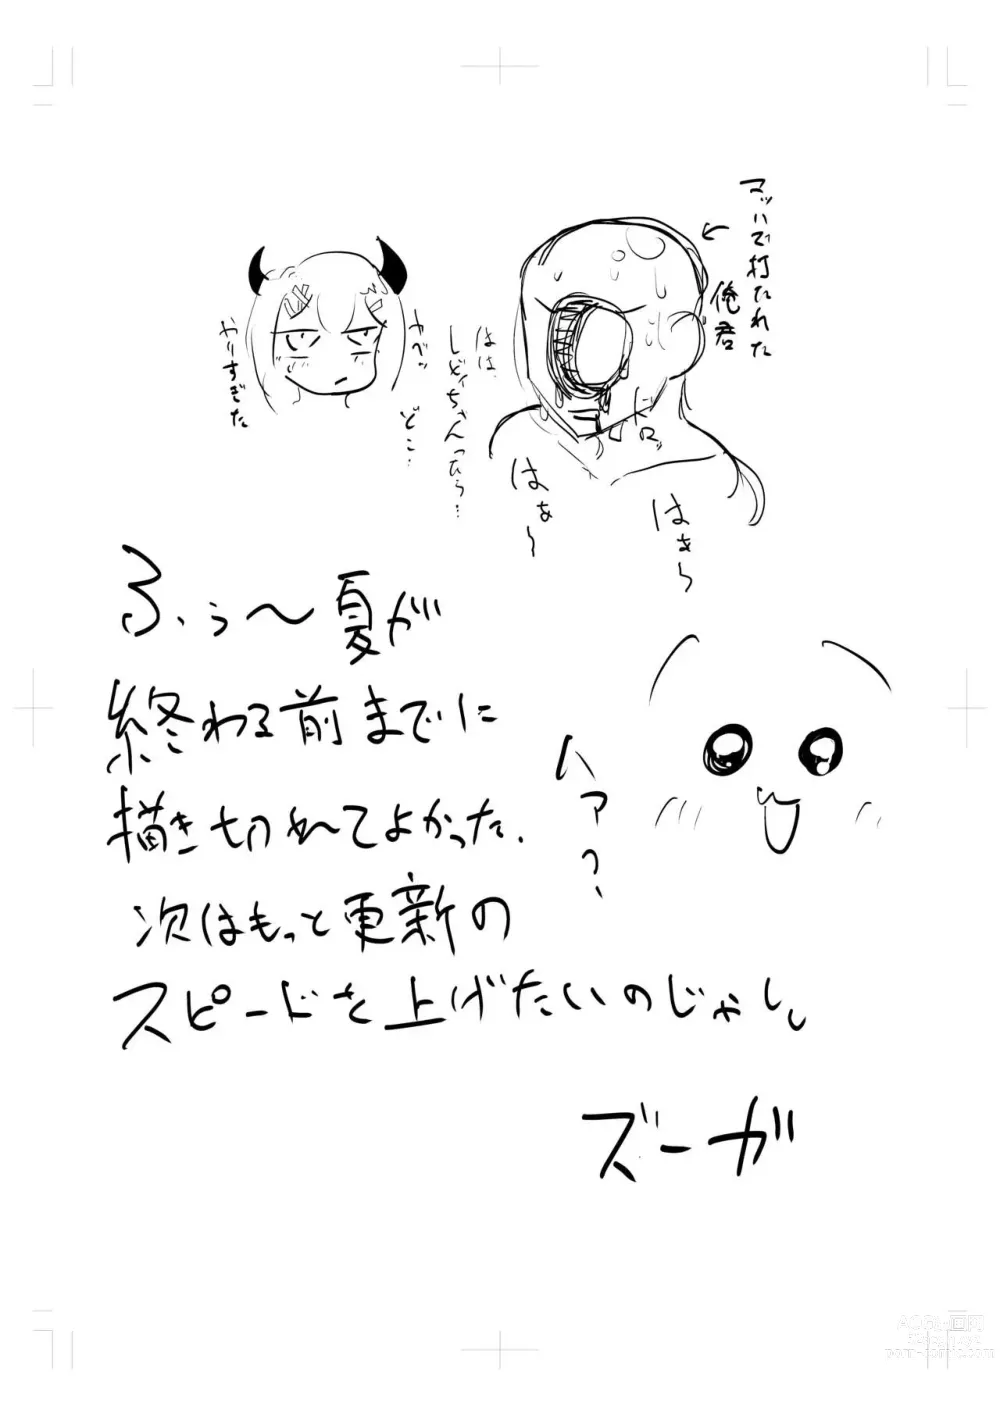 マッハで打たれた
俺君
ヤベッ
やりすぎた
はは、
しどいちゃんったら…
どこ…
ドロッ
はぁ〜
はぁ〜
ふぅ〜夏が
終わる前までに
描き切れてよかった.
次はもっと更新の
スピードを上げたいのじゃし。
ハァ?
ズーガ